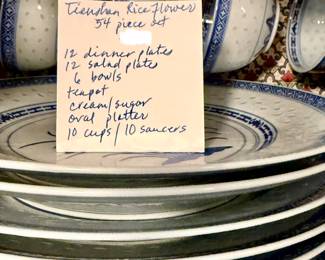 Tienshan Rice Flower
54 piece set
12 dinner plates
12 salad plates
6 bowls
teapot
cream/sugar
oval platter
10 cups/10 saucers